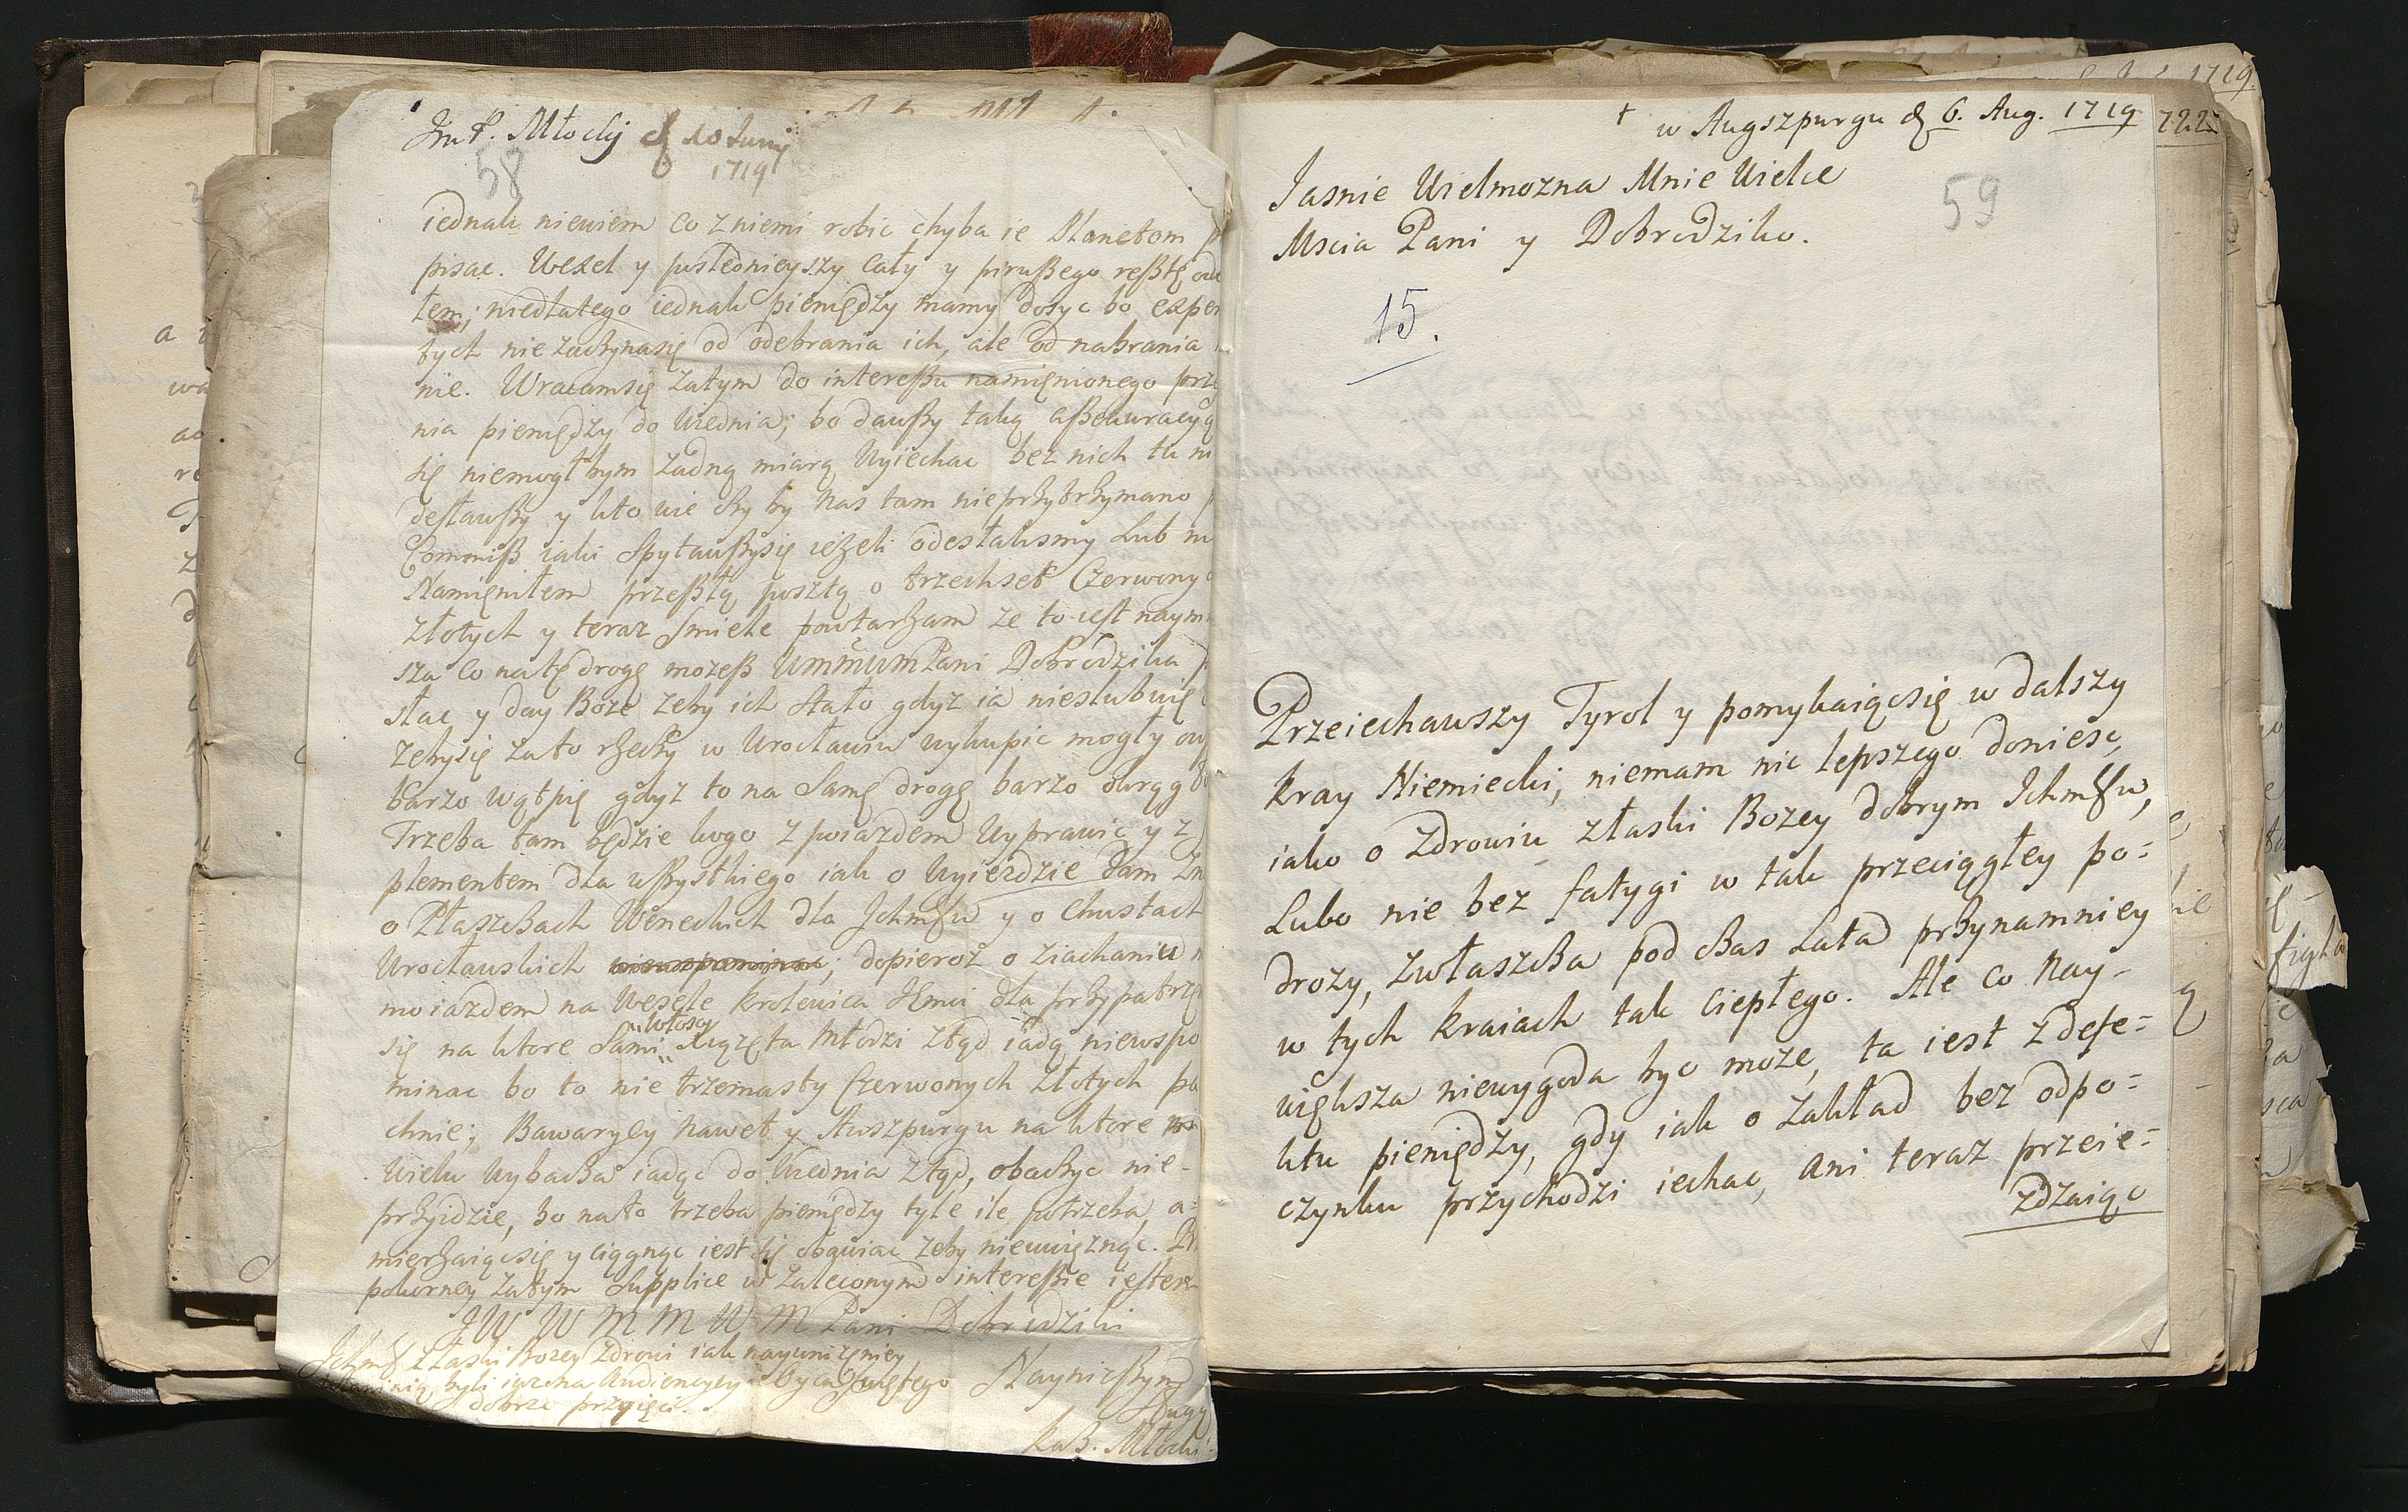 Im P. Młocki d 10 Junij
1719
58
iednak niewiem co z niemi robic chyba ie Planetom
pisac. Wexel y poslednieyszy cały y pirußego resztę
łem; niedlatego iednak pieniędzy mamy dosyc bo
tych niezaczynasię od odebrania ich, ale od nabrania
nie. Wracamsię zatym do interessu namięnionego
nia pieniędzy do Wiednia; bo dawszy taką assekuracyą
się niemogłbym zadną miarą wyiechac bez nich tu
destawszy y kto wie czy by nas tam nieprzytrzymano
Commiss iaki spytawszysię iezeli odesłalismy Lub
Namięniłem przeszłą posztą o trzechset Czerwonych
złotych y teraz smiele powtarzam ze to iest
sza co natę drogę mozesz WmmumPani Dobrodzika
słac y day Boze zeby ich stało gdyz ia nieslubuię
zebysię zato rzeczy w Wrocławiu wykupic mogły
barzo wątpię gdyz to na samę drogę barzo okrąg
Trzeba tam będzie kogo z poiazdem wyprawic y z
plementem dla wszystkiego iak o wyiezdzie dam
o Ptaszkach Weneckich dla Ichmsw y o Chustach
Wrocławskich niewspominac; dopieroz o ziachaniu
moiazdem na Wesele krolewica JEmci dla przypatrzę
się na ktore sami Włoscy Xiązęta Młodzi ztąd iadą niewspo
minac bo to nie trzemasty Czerwonych złotych pa
chnie; Bawaryey nawet y Auszpurgu na ktore
Wielu wybacza iadąc do Wiednia ztąd, obaczyc nie-
przyidzie, bo nato trzeba pieniędzy tyle ile potrzeba, a-
mierzaiącsię y ciągnąc iest się obawiac zeby nieuwięznąc.
pokorney zatym Supplice w zaleconym interessie iestem
J W W M M W M Pani Dobrodziki
Ichms z łaski Bozey zdrowi iak nayunizeniey
byli iuz na Audiencyey Oyca Swiętego
dobrze przyięci.
Nayniszszym
Sługą
Kaz. Młocki
† w Augszpurgu d 6. Aug. 1719
722
59
Jasnie Wielmozna Mnie Wielce
Mscia Pani y Dobrodziko.
15.
Przeiechawszy Tyrol y pomykaiącsię w dalszy
kray Niemiecki, niemam nic lepszego doniesc,
iako o zdrowiu złaski Bozey dobrym Ichmsw,
Lubo nie bez fatygi w tak przeciągłey po=
drozy, zwłaszcza pod czas Lata przynamniey
w tych kraiach tak ciepłego. Ale co nay-
większa niewygoda byc moze, ta iest z defe=
ktu pieniędzy, gdy iak o zakład bez odpo=
czynku przychodzi iechac, ani teraz przeie=
zdzaiąc